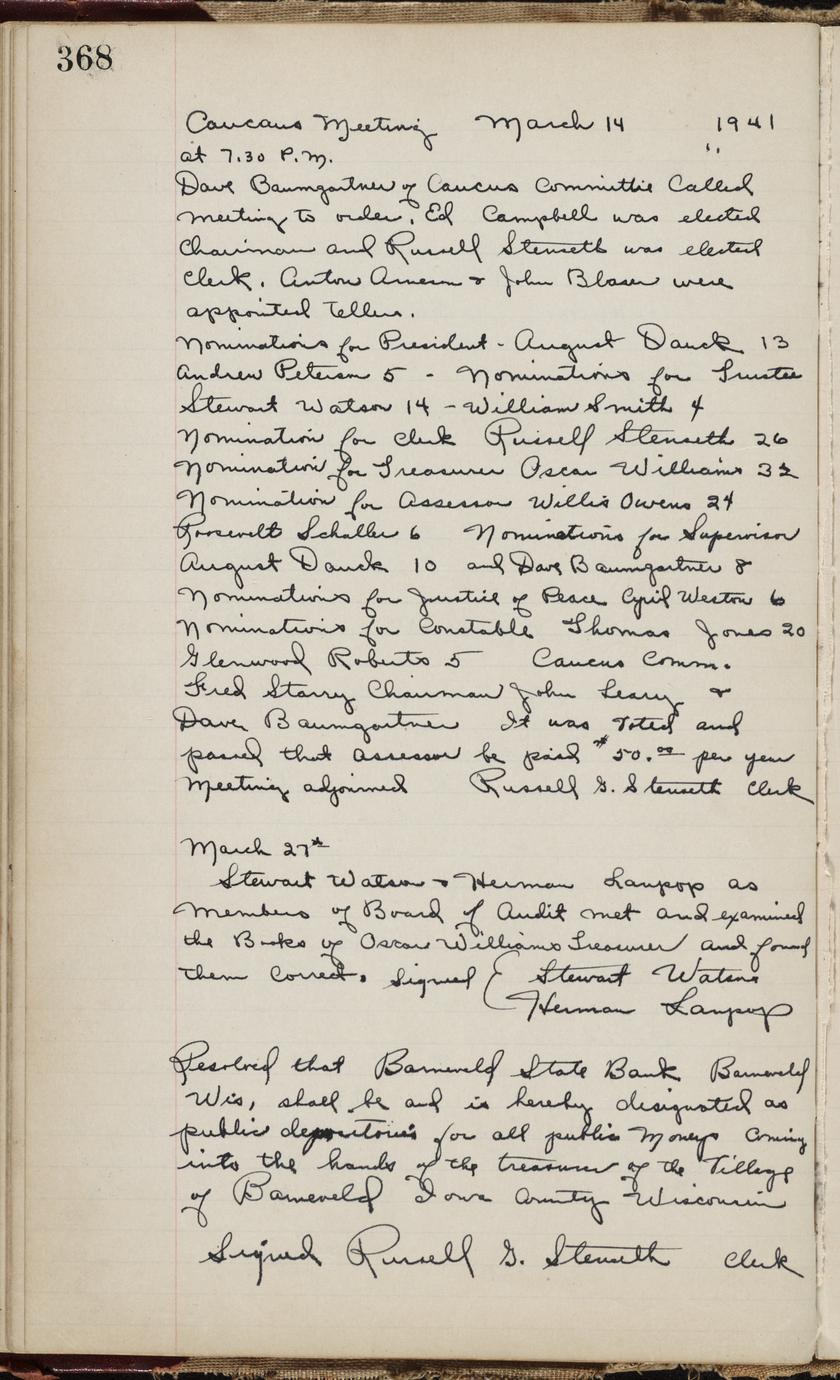 368
Caucaus Meeting March 14 1941
at 7.30 P.M. "
Dave Baumgartner of Caucus Committie Called
meeting to order. Ed Campbell was elected
Chairman and Russell Stenseth was elected
Clerk. Anton Arneson & John Blaser were
appointed Tellers.
Nominations for President - August Dauck 13
Andrew Peterson 5 - Nominations for Trustee
Stewart Watson 14 - William Smith 4
Nomination for Clerk Russell Stenseth 26
Nomination for Treasurer Oscar Williams 32
Nomination for Assessor Willis Owens 24
Roosevelt Schaller 6 Nominations for Supervisor
August Dauck 10 and Dave Baumgartner 8
Nominations for Justice of Peace Cyril Weston 6
Nominations for Constable Thomas Jones 20
Glenwood Roberts 5 Caucus Comm.
Fred Starry Chairman John Leary &
Dave Baumgartner It was voted and
passed that assessor be paid $50.00 per year
Meeting adjorned Russell G. Stenseth Clerk
March 27th
Stewart Watson & Herman Lampop as
Members of Board of Audit met and examined
the Books of Oscar Williams Treasurer and found
them Correct. Signed ( Stewart Watson
Herman Lampop
Resolved that Barneveld State Bank Barneveld
Wis, shall be and is hereby designated as
public depositories for all public Moneys coming
into the hands of the treasurer of the Village
of Barneveld Iowa County Wisconsin
Signed Russell G. Stenseth Clerk